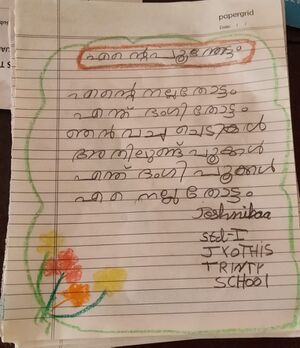 papergrid
Date: / /
എന്റെ പൂന്തോട്ടം
എന്റെ നല്ല തോട്ടം
എന്ത് ഭംഗി തോട്ടം
ഞാൻ വച്ച ചെടികൾ
അതിലുണ്ട് പൂക്കൾ
എന്ത് ഭംഗി പൂക്കൾ
എ നല്ല തോട്ടം
Joshnikaa
std-I
JYOTHIS
TRINTY
SCHOOL